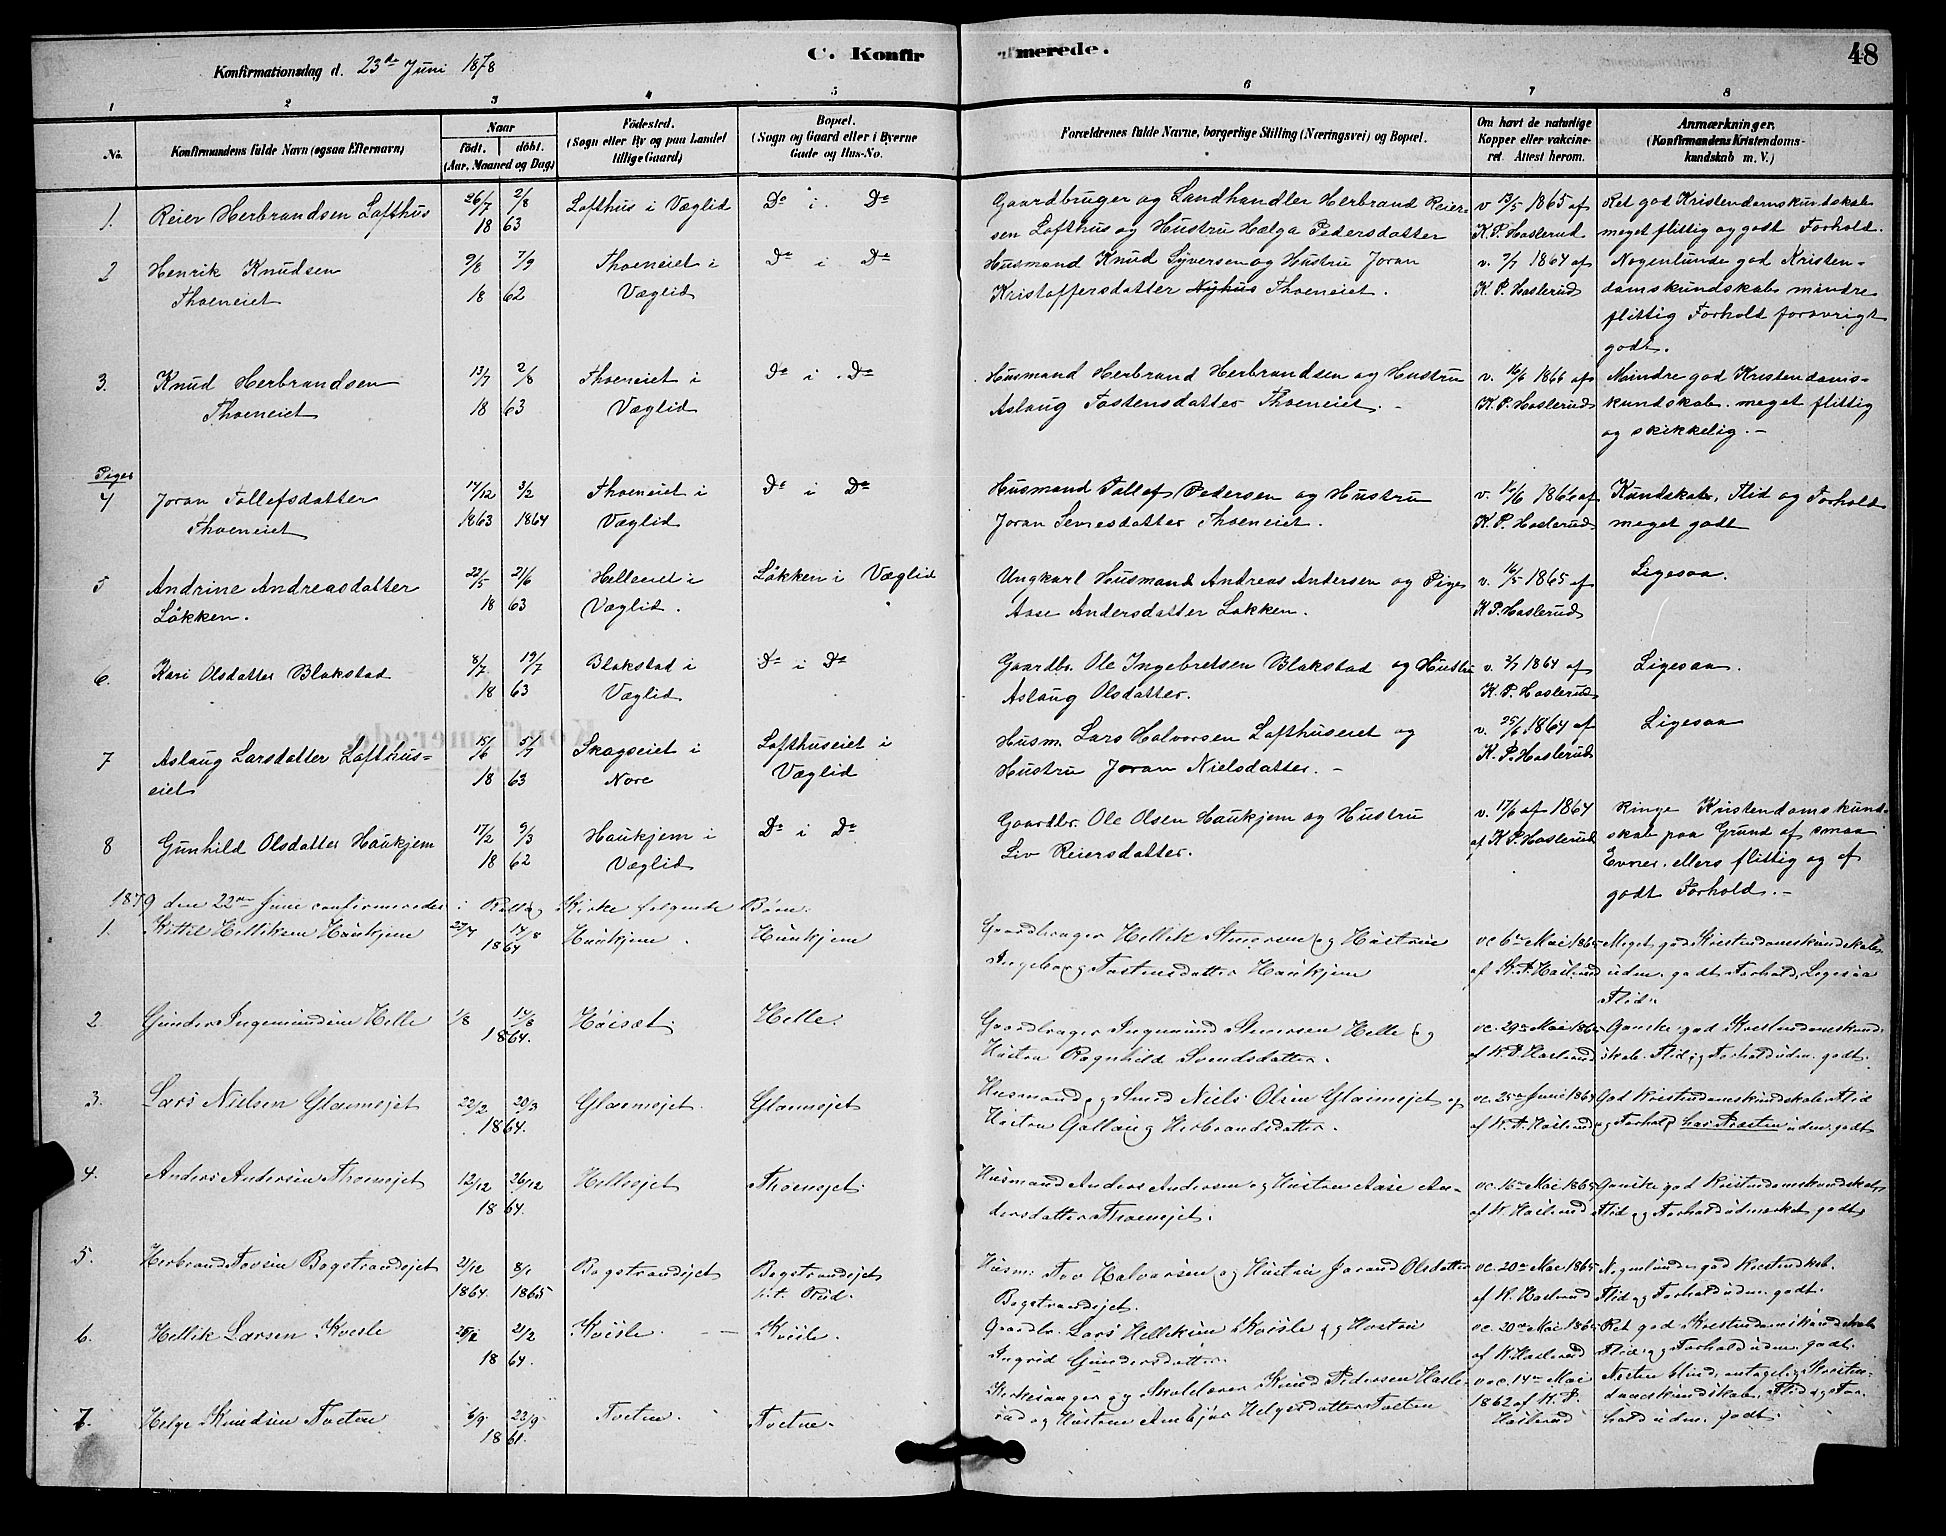 C. Konfirmerede.
48
Konfirmationsdag d. 23de Juni 1878
1 2 3 4 5 6 7 8
No. Konfirmandens fulde Navn (ogsaa Efternavn) Naar født. døbt. (Aar, Maaned og Dag) Fødested. (Sogn eller By og paa Landet tillige Gaard) Bopæl. (Sogn og Gaard eller i Byerne Gade og Hus-No. Forældrenes fulde Navne, borgerlige Stilling (Næringsvei) og Bopæl. Om havt de naturlige Kopper eller vaccineret. Attest herom. Anmærkninger. (Konfirmandens Kristendomskundskab m. V.)
1. Reier Herbrandsen Lofthus 26/7 2/8 Lofthus i Væglid Do i Do Gaardbruger og Landhandler Herbrand Reier- v 13/5 1865 af Ret god Kristendomskundskab
18 63 sen Lofthus og Hustru Helga Pedersdatter K. P. Haslerud meget flittig og godt Forhold.
2 Henrik Knudsen 9/8 7/9 Thoeneiet i Do i Do Husmand Knud Syversen og Hustru Joran v. 7/7 1864 af Nogenlunde god Kristen-
Thoeneiet 18 62 Væglid Kristoffersdatter Nyhus Thoeneiet. K. P. Haslerud domskundskab mindre
flittig Forhold forøvrigt
godt.
3. Knud Herbrandsen 13/7 2/8 Thoeneiet i Do i Do Husmand Herbrand Herbrandsen og Hustru v. 16/6 1866 af Mindre god Kristendoms-
Thoeneiet 18 63 Væglid Aslaug Tostensdatter Thoeneiet. - K. P. Haslerud kundskab. meget flittig
og skikkelig. -
Piger
4 Joran Tollefsdatter 17/12 3/2 Thoeneiet i Do i Do Husmand Tollef Pedersen og Hustru v. 16/6 1866 af Kundskab, Flid og Forhold
Thoeneiet 1863 1864 Væglid Joran Semesdatter Thoeneiet. K. P. Haslerud meget godt
5 Andrine Andreasdatter 22/5 21/6 Helleeiet i Løkken i Væglid Ungkarl Husmand Andreas Andersen og Pige v. 16/5 1865 af Ligesaa.
Løkken. 18 63 Væglid. Aase Andersdatter Løkken. K P. Haslerud
6. Kari Olsdatter Blakstad 8/7 19/7 Blakstad i Do i Do Gaardbr. Ole Ingebretsen Blakstad og Hustru v. 2/7 1864 af Ligesaa.
18 63 Væglid Aslaug Olsdatter. K. P. Haslerud
7 Aslaug Larsdatter Lofthus- 15/6 5/7 Skogseiet i Lofthuseiet i Husm. Lars Halvorsen Lofthuseiet og v. 25/6 1864 af Ligesaa
eiet 18 63 Nore Væglid Hustru Joran Nielsdatter. - K. P. Haslerud
8 Gunhild Olsdatter Haukjem 17/2 9/3 Haukjem i Do i Do Gaardbr. Ole Olsen Haukjem og Hustru v. 17/6 af 1864 Ringe Kristendomskund-
18 62 Væglid Liv Reiersdatter. af K P. Haslerud skab paa Grund af smaa
Evner. ellers flittig og af
godt Forhold. -
1879 den 22de Juni confirmeredes i Rollag Kirke følgende Børn.
1. Kittil Helliksen Haukjem 27/7 14/8 Haukjem. Haukjem Gaardbruger Hellik Steensen og Hustru vc. 6te Mai 1865 Meget god Kristendomskundskab,
1864 Ingeborg Tostensdatter Haukjem af K. P. Haslerud uden. godt Forhold, Ligesaa
Flid.
2. Gunder Ingemundsen Helle 1/8 14/8 Høisæt. Helle. Gaardbruger Ingemund Steensen Helle og vc. 29de Mai 1865 Ganske god Kristendomskund-
1864. Hustru Ragnhild Svendsdatter. af K. P. Haslerud skab. Flid og Forhold uden. godt.
3. Lars Nielsen Glaimsejet 22/2 20/3 Glaimsejet. Glaimsejet Husmand og Smed Niels Olsen Glaimsejet og vc. 25de Juni 1864 God Kristendomskundskab. Flid
1864. Hustru Gallaug Herbrandsdatter. af K. P. Haslerud og Forhold uden. godt
4. Anders Andersen Thoensejet 12/12 26/12 Hellesejet Thoensejet. Husmand Anders Andersen og Hustru Aase An- vc. 16de Mai 1865 Ganske god Kristendomskundskab,
1864. dersdatter Thoensejet. af K. Haslerud Flid og Forhold udmerket godt
5. Herbrand Tovsen Bogstrandsejet 21/12 8/1 Bogstrandsejet Bogstrandsejet Husm: Tov Halvorsen og Hustru Jorand Olsdatter vc. 20de Mai 1865 Nogenlunde god Kristendskab.
1864. 1865 p.t. Rud. Bogstrandsejet. af K. Haslerud Flid og Forhold uden. godt.
6. Hellik Larsen Kvisle 21/2 Kvisle. - Kvisle. Gaardbr. Lars Helliksen Kvisle og Hustru vc. 20de Mai 1865 Ret god Kristendomskundskab
1864. Ingrid Gundersdatter. af K. Haslerud Flid og Forhold uden. godt.
7. Helge Knudsen Tveten 6/9 22/9 Tveten. Tveten. Kirkesanger og Skolelærer Knud Pedersen Hasle- vac. 14de Mai Næsten blind, antagelig Kristen-
1861. rud og Hustru Ambjør Helgesdatter Tveten 1862 af K. P. domskundskab, Flid og For-
Haslerud hold uden. godt.